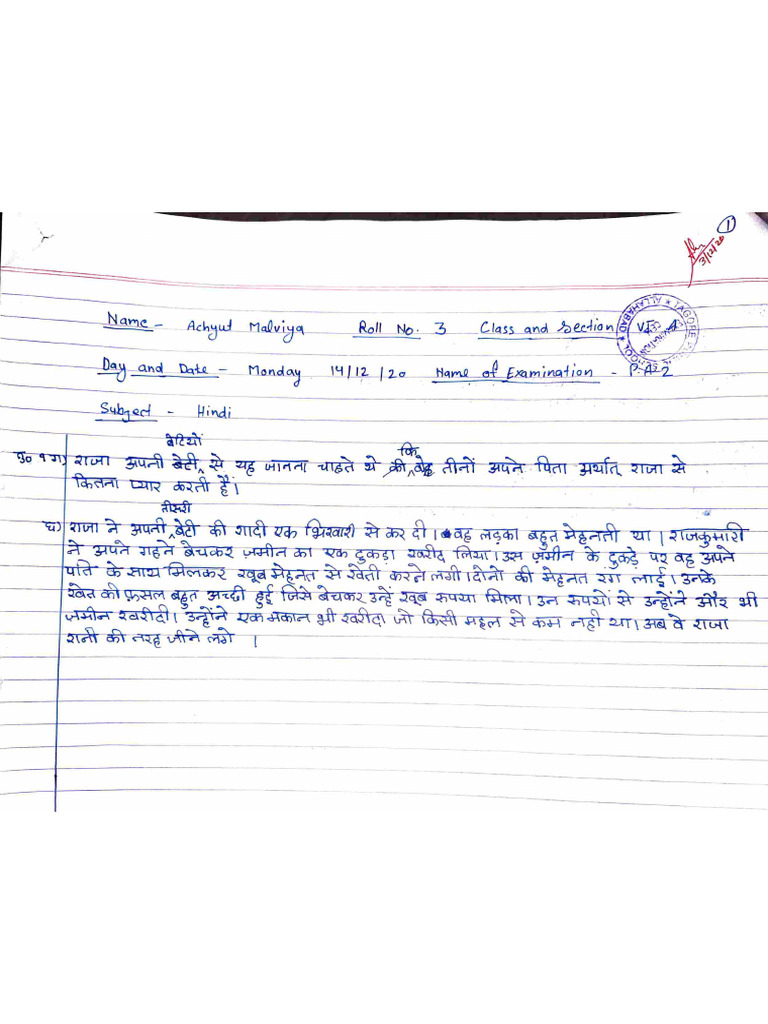 1
3/12/20
Name - Achyut Malviya Roll No. 3 Class and Section VI A
Day and Date - Monday 14/12/20 Name of Examination - P.A-2
Subject - Hindi
बेटियों
राजा अपनी बेटी से यह जानना चाहते थे की कि तीनों अपने पिता अर्थात् राजा से
कितना प्यार करती हैं।
तीसरी
घ) राजा ने अपनी बेटी की शादी एक भिखारी से कर दी। वह लड़का बहुत मेहनती था। राजकुमारी
ने अपने गहने बेचकर ज़मीन का एक टुकड़ा खरीद लिया। उस ज़मीन के टुकड़े पर वह अपने
पति के साथ मिलकर खूब मेहनत से खेती करने लगी। दोनों की मेहनत रंग लाई। उनके
खेत की फ़सल बहुत अच्छी हुई जिसे बेचकर उन्हें खूब रुपया मिला। उन रुपयों से उन्होंने और भी
ज़मीन खरीदी। उन्होंने एक मकान भी खरीदा जो किसी महल से कम नही था। अब वे राजा
रानी की तरह जीने लगे।